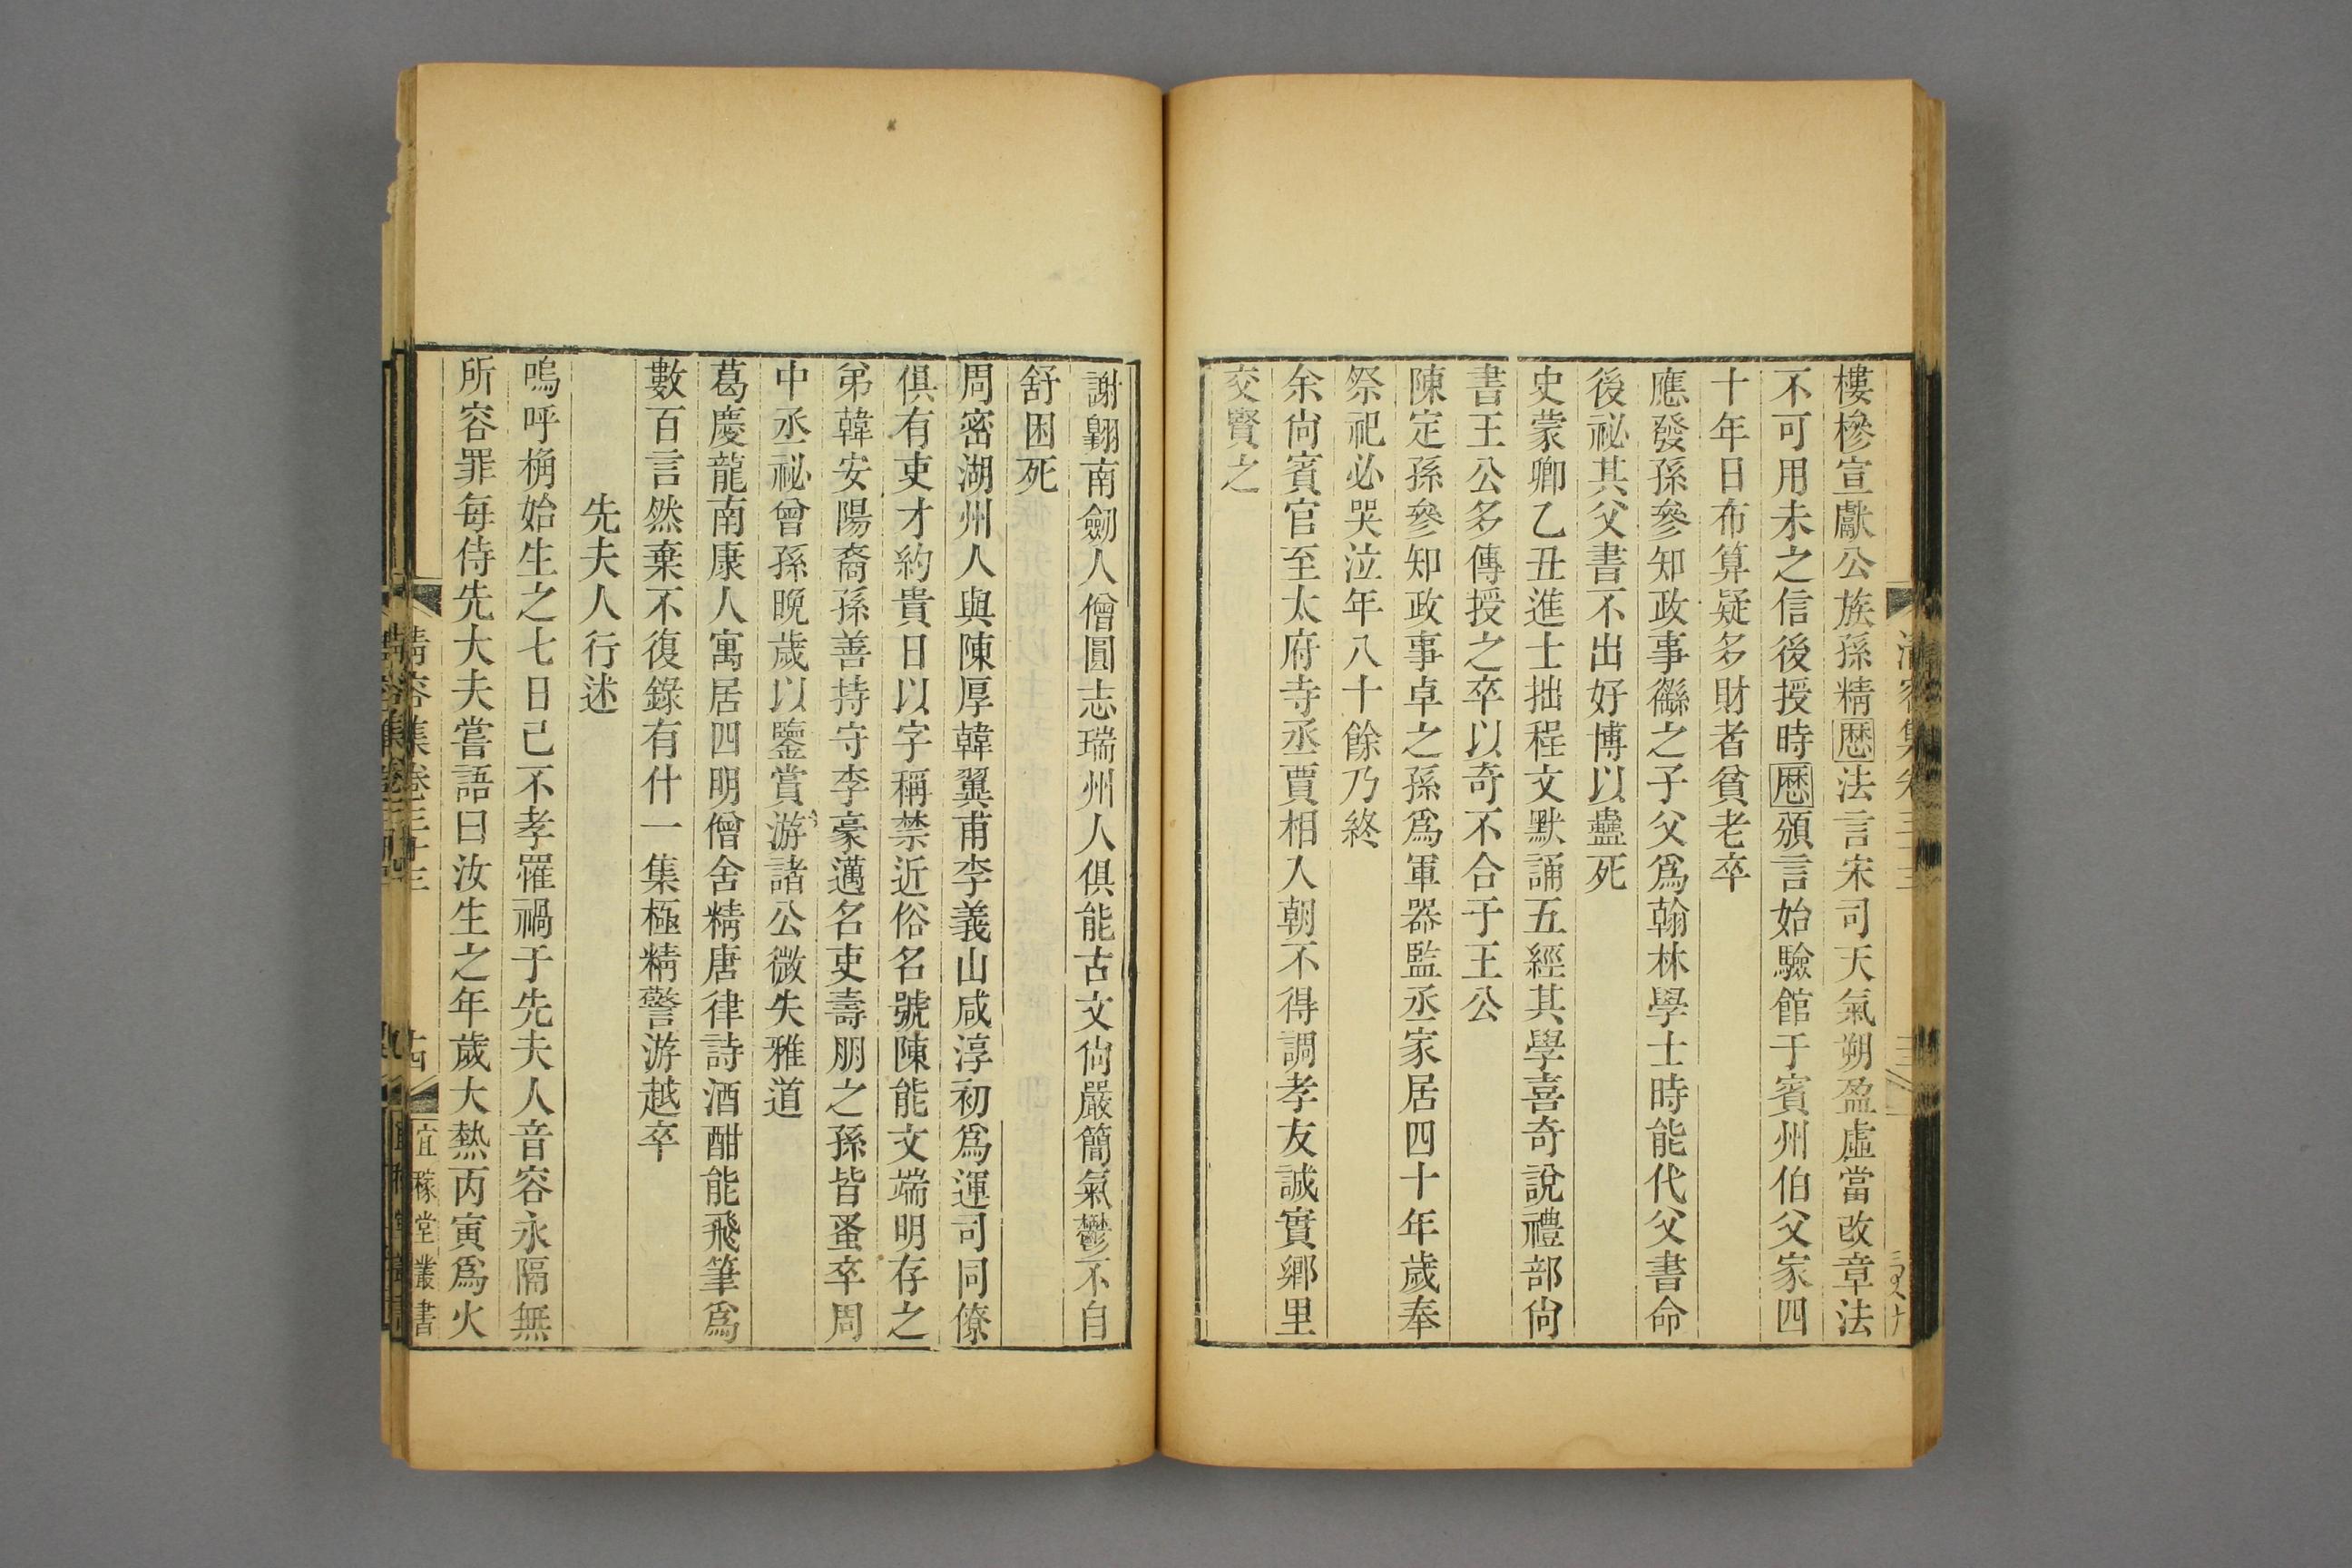 樓槮宣獻公族孫精厯法言宋司天氣朔盈虛當改章法
不可用未之信後授時厯頒言始驗館于賓州伯父家四
十年日布算疑多財者貧老卒
應發孫參知政事㒡之子父爲翰林學士時能代父書命
後祕其父書不出好博以蠱死
史蒙卿乙丑進士拙程文默誦五經其學喜奇說禮部尙
書王公多傳授之卒以奇不合于王公
陳定孫參知政事卓之孫爲軍器監丞家居四十年歲奉
祭祀必哭泣年八十餘乃終
余尙賓官至太府寺丞賈相入朝不得調孝友誠實鄉里
交賢之
謝翺南劒人僧圓志瑞州人俱能古文尙嚴簡氣鬱不自
舒困死
周密湖州人與陳厚韓翼甫李義山咸淳初爲運司同僚
俱有吏才約貴日以字稱禁近俗名號陳能文端明存之
弟韓安陽裔孫善持守李豪邁名吏壽朋之孫皆蚤卒周
中丞祕曾孫晚歲以鑒賞游諸公微失雅道
葛慶龍南康人寓居四明僧舍精唐律詩酒酣能飛筆爲
數百言然棄不復錄有什一集極精警游越卒
先夫人行述
嗚呼桷始生之七日己不孝罹禍于先夫人音容永隔無
所容罪每侍先大夫嘗語曰汝生之年歲大熱丙寅爲火
清容集卷三十三
古
宜稼堂叢書